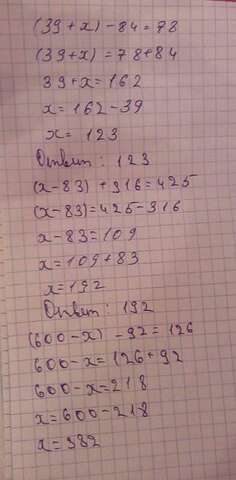 (39 + x) - 84 = 78
(39+x) = 78+84
39+x=162
x=162-39
x= 123
Ответ: 123
(x-83) + 316=425
(x-83)=425-316
x-83=109
x=109+83
x=192
Ответ: 192
(600-x) -92=126
600-x=126+92
600-x=218
x=600-218
x=382